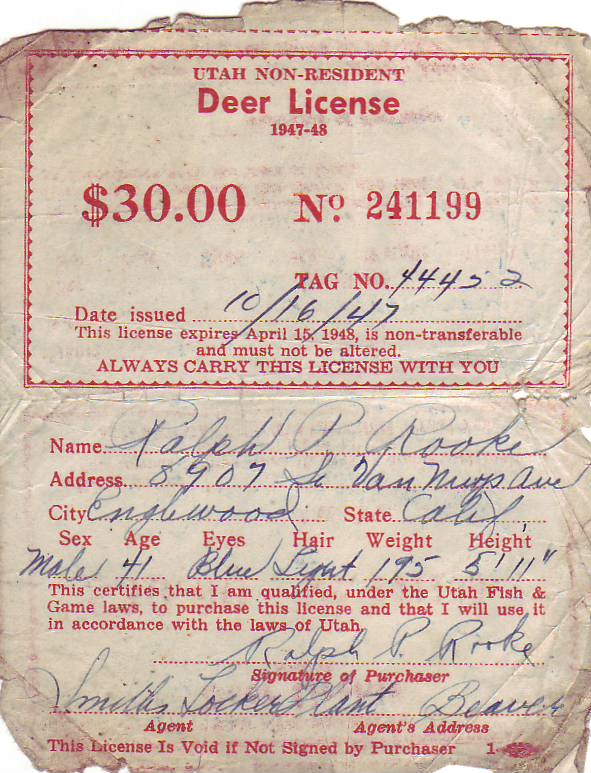 UTAH NON-RESIDENT
Deer License
1947-48
$30.00 No. 241199
TAG NO. 44452
Date issued 10/16/47
This license expires April 15, 1948, is non-transferable
and must not be altered.
ALWAYS CARRY THIS LICENSE WITH YOU
Name Ralph P. Rooke
Address 8907 So Van Nuys Ave
City Englewood State Calif.
Sex Age Eyes Hair Weight Height
Male 41 Blue Light 195 5'11"
This certifies that I am qualified, under the Utah Fish &
Game laws, to purchase this license and that I will use it
in accordance with the laws of Utah.
Ralph P. Rooke
Signature of Purchaser
Smiths Locker Plant Beaver
Agent Agent's Address
This License Is Void if Not Signed by Purchaser 1